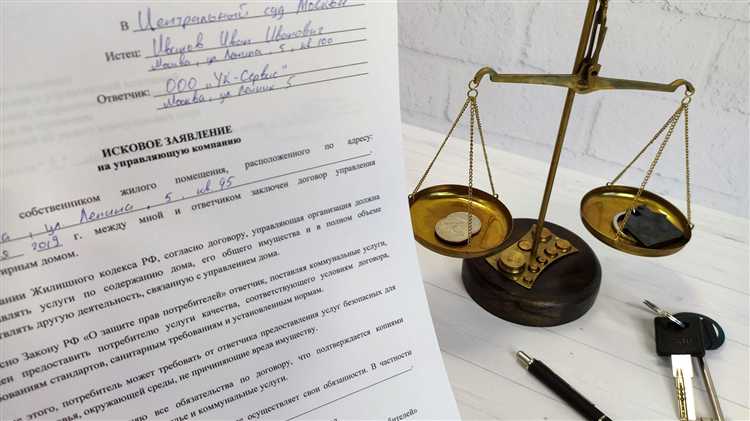 В Центральный суд Москвы
Истец: Иванов Иван Иванович
Москва, ул Ленина, 5, кв 100
Ответчик: ООО "УК-Сервис"
Москва, ул Ленина 5
ИСКОВОЕ ЗАЯВЛЕНИЕ
на управляющую компанию
собственником жилого помещения, расположенного по адресу:
ул Ленина, 5, кв 95
2019 г. между мной и ответчиком заключен договор управления
домом.
Жилищного кодекса РФ, согласно договору, управляющая организация должна
услуги по содержанию дома, его общего имущества и в полном объеме
другую деятельность, связанную с управлением дома.
Закону РФ «О защите прав потребителей» ответчик, поставляя коммунальные услуги,
предоставить потребителю услуги качества, соответствующего условиям договора,
стандартов, санитарным требованиям и установленным нормам.
этого, потребитель может требовать от ответчика предоставления услуг безопасных для
окружающей среды, не причиняющие вреда имуществу.
все обязательства по договору, что подтверждается копиями
и коммунальные услуги.
осуществляет свои обязанности. В частности